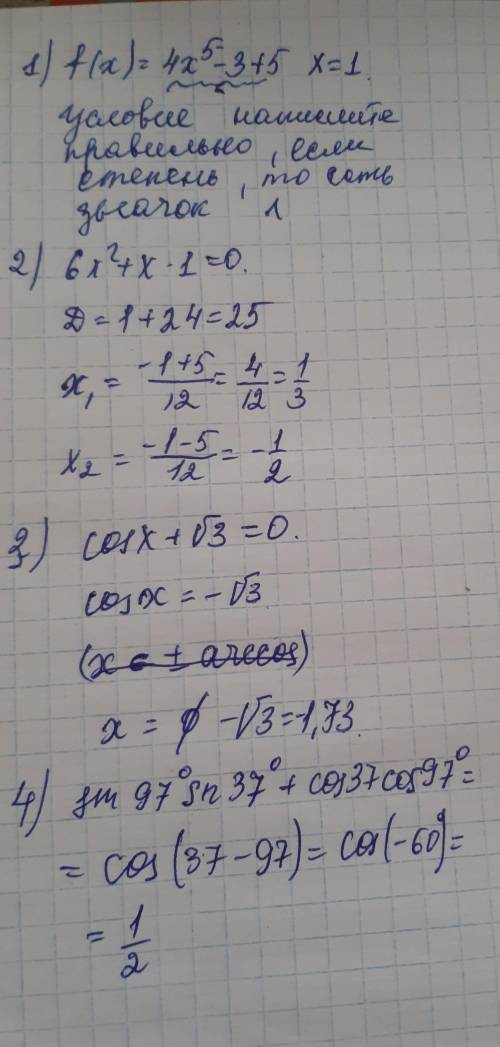 1) f(x) = 4x⁵-3+5 x=1.
условие напишите
правильно, если
степень, то есть
значок ^
2) 6x²+x-1=0.
D=1+24=25
x₁ = -1+5/12 = 4/12 = 1/3
x₂ = -1-5/12 = -1/2
3) cosx+√3=0.
cosx = -√3
(x = ± arccos)
x = ∅ -√3=-1,73.
4) sin 97° sin 37° + cos37 cos97° =
= cos(37-97) = cos(-60) =
= 1/2